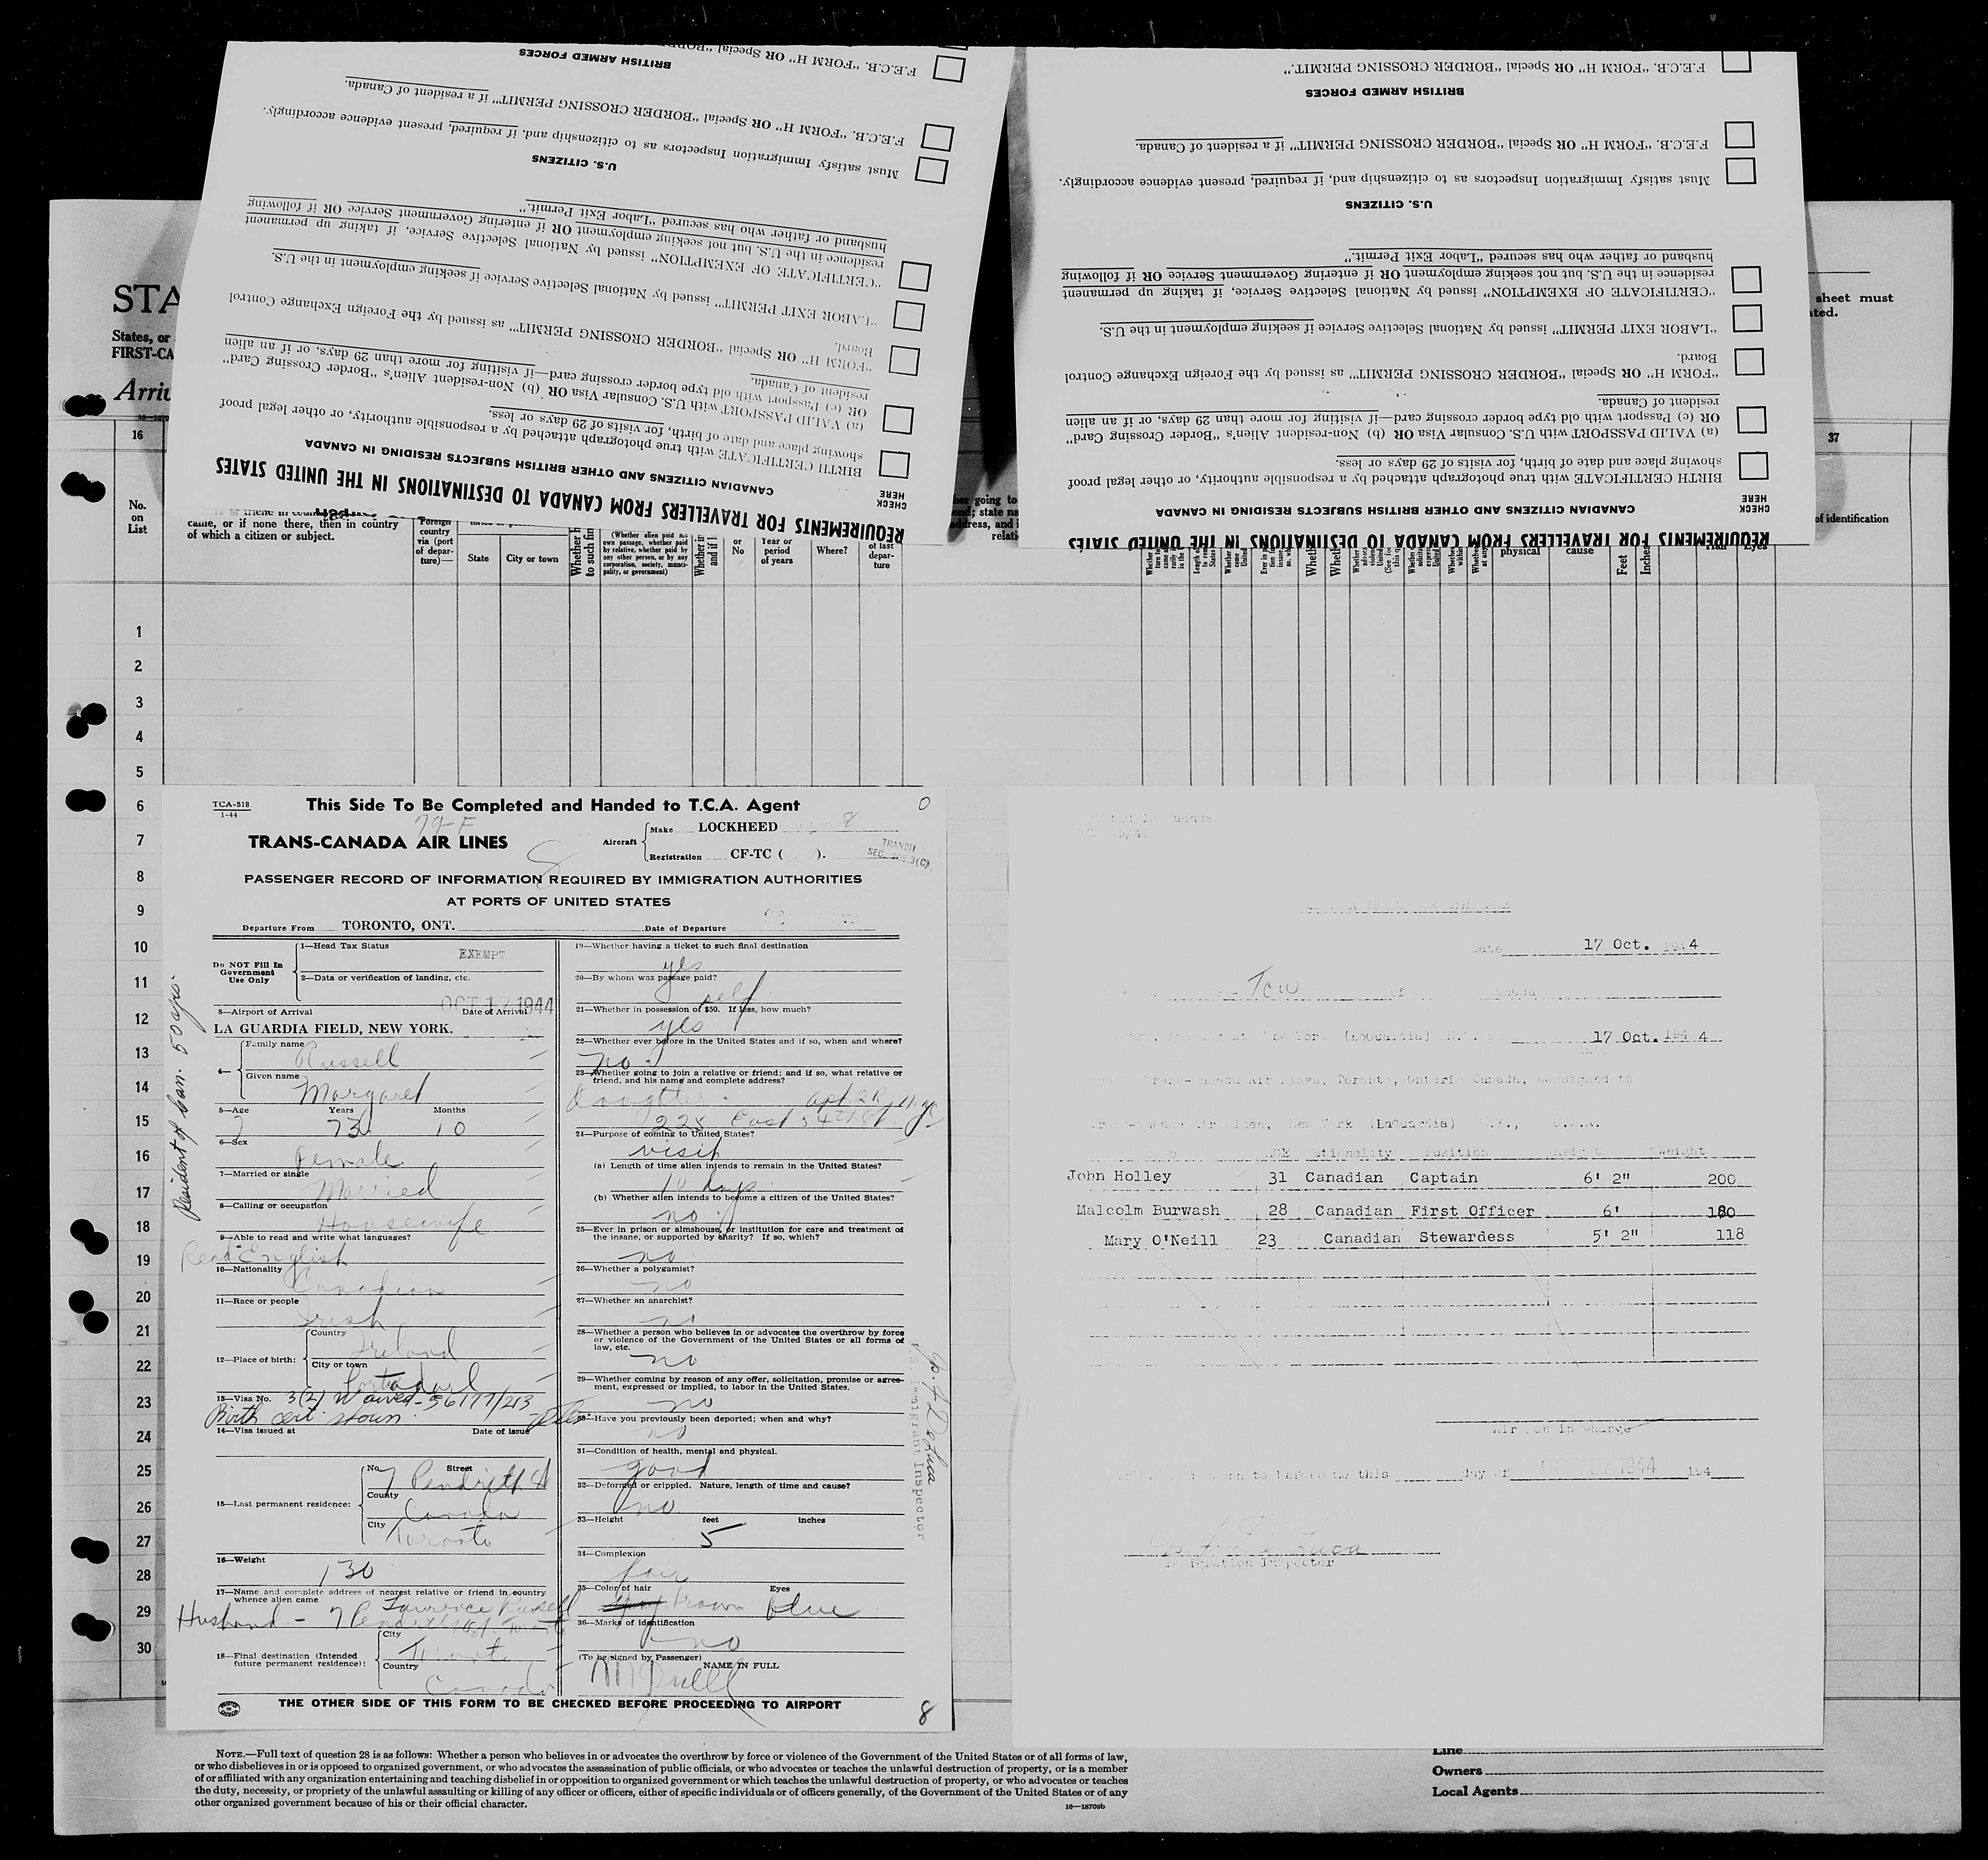 F.E.C.B. "FORM H" OR Special
BRITISH ARMED FORCES
F.E.C.B. "FORM H" OR Special "BORDER CROSSING PERMIT" if a resident of Canada.
Must satisfy Immigration Inspectors as to citizenship and, if required, present evidence accordingly.
U.S. CITIZENS
husband or father who has secured "Labor Exit Permit."
residence in the U.S. but not seeking employment OR if entering Government Service OR if following
"CERTIFICATE OF EXEMPTION" issued by National Selective Service, if taking up permanent
"LABOR EXIT PERMIT" issued by National Selective Service if seeking employment in the U.S.
Board.
"FORM H" OR Special "BORDER CROSSING PERMIT" as issued by the Foreign Exchange Control
resident of Canada.
OR (c) Passport with old type border crossing card—if visiting for more than 29 days, or if an alien
(a) VALID PASSPORT with U.S. Consular Visa OR (b) Non-resident Alien's "Border Crossing Card"
showing place and date of birth, for visits of 29 days or less.
BIRTH CERTIFICATE with true photograph attached by a responsible authority, or other legal proof
CANADIAN CITIZENS AND OTHER BRITISH SUBJECTS RESIDING IN CANADA
CHECK HERE
REQUIREMENTS FOR TRAVELLERS FROM CANADA TO DESTINATIONS IN THE UNITED STATES
F.E.C.B. "FORM H" OR Special "BORDER CROSSING PERMIT."
BRITISH ARMED FORCES
F.E.C.B. "FORM H" OR Special "BORDER CROSSING PERMIT" if a resident of Canada.
Must satisfy Immigration Inspectors as to citizenship and, if required, present evidence accordingly.
U.S. CITIZENS
husband or father who has secured "Labor Exit Permit."
residence in the U.S. but not seeking employment OR if entering Government Service OR if following
"CERTIFICATE OF EXEMPTION" issued by National Selective Service, if taking up permanent
"LABOR EXIT PERMIT" issued by National Selective Service if seeking employment in the U.S.
Board.
"FORM H" OR Special "BORDER CROSSING PERMIT" as issued by the Foreign Exchange Control
resident of Canada.
OR (c) Passport with old type border crossing card—if visiting for more than 29 days, or if an alien
(a) VALID PASSPORT with U.S. Consular Visa OR (b) Non-resident Alien's "Border Crossing Card"
showing place and date of birth, for visits of 29 days or less.
BIRTH CERTIFICATE with true photograph attached by a responsible authority, or other legal proof
CHECK HERE
CANADIAN CITIZENS AND OTHER BRITISH SUBJECTS RESIDING IN CANADA
REQUIREMENTS FOR TRAVELLERS FROM CANADA TO DESTINATIONS IN THE UNITED STATES
STA
States, or
FIRST-CA
Arriv
sheet must
16
37
No. on List
came, or if none there, then in country
of which a citizen or subject.
Foreign country via (port of departure)—
State
City or town
(Whether alien paid his own passage, whether paid by relative, whether paid by any other person, or by any corporation, society, municipality, or government)
or No
Year or period of years
Where?
of last departure
physical
cause
Feet
Inches
of identification
1
2
3
4
5
6
7
8
9
10
11
12
13
14
15
16
17
18
19
20
21
22
23
24
25
26
27
28
29
30
TCA-518
1-44
This Side To Be Completed and Handed to T.C.A. Agent
TRANS-CANADA AIR LINES
Aircraft Make LOCKHEED 8
Registration CF-TC ( ).
TRANSIT
PASSENGER RECORD OF INFORMATION REQUIRED BY IMMIGRATION AUTHORITIES
AT PORTS OF UNITED STATES
Departure From TORONTO, ONT. Date of Departure
Do NOT Fill In Government Use Only
1—Head Tax Status EXEMPT
2—Data or verification of landing, etc.
OCT 17 1944
3—Airport of Arrival Date of Arrival
LA GUARDIA FIELD, NEW YORK.
Resident of Can. 50 yrs.
4— Family name Russell
Given name Margaret
5—Age Years 73 Months 10
6—Sex Female
7—Married or single Married
8—Calling or occupation Housewife
9—Able to read and write what languages?
Read English
10—Nationality Canadian
11—Race or people Irish
12—Place of birth: Country Ireland
City or town Portadarl
13—Visa No. 3(2) Waived - 56177/213
Birth cert. shown.
14—Visa issued at Date of issue
15—Last permanent residence: No. 7 Street Pendrith St
County Canada
City Toronto
16—Weight 130
17—Name and complete address of nearest relative or friend in country
whence alien came Lawrence Russell
Husband - 7 Pendrith St. Toronto
18—Final destination (Intended future permanent residence): City Toronto
Country Canada
19—Whether having a ticket to such final destination
yes
20—By whom was passage paid?
self
21—Whether in possession of $50. If less, how much?
yes
22—Whether ever before in the United States and if so, when and where?
no
23—Whether going to join a relative or friend; and if so, what relative or
friend, and his name and complete address?
Daughter.
225 East 54th St.
24—Purpose of coming to United States?
visit
(a) Length of time alien intends to remain in the United States?
10 days
(b) Whether alien intends to become a citizen of the United States?
no
25—Ever in prison or almshouse, or institution for care and treatment of
the insane, or supported by charity? If so, which?
no
26—Whether a polygamist?
no
27—Whether an anarchist?
no
28—Whether a person who believes in or advocates the overthrow by force
or violence of the Government of the United States or all forms of
law, etc.
no
29—Whether coming by reason of any offer, solicitation, promise or agreement, expressed or implied, to labor in the United States.
no
30—Have you previously been deported; when and why?
no
31—Condition of health, mental and physical.
good
32—Deformed or crippled. Nature, length of time and cause?
no
33—Height feet inches
5
34—Complexion
fair
35—Color of hair Eyes
brown blue
36—Marks of identification
no
(To be signed by Passenger) NAME IN FULL
M Russell
U.S. Immigrant Inspector
THE OTHER SIDE OF THIS FORM TO BE CHECKED BEFORE PROCEEDING TO AIRPORT
8
Date 17 Oct. 1944
TCU
17 Oct. 1944
Trans-Canada Air Lines, Toronto, Ontario Canada, consigned to
Trans-Canada Air Lines, New York (LaGuardia) N.Y., U.S.A.
Age Nationality Position Height Weight
John Holley 31 Canadian Captain 6' 2" 200
Malcolm Burwash 28 Canadian First Officer 6' 180
Mary O'Neill 23 Canadian Stewardess 5' 2" 118
Airman in Charge
sworn to before me this day of OCT 17 1944 194
Immigration Inspector
NOTE.—Full text of question 28 is as follows: Whether a person who believes in or advocates the overthrow by force or violence of the Government of the United States or of all forms of law,
or who disbelieves in or is opposed to organized government, or who advocates the assassination of public officials, or who advocates or teaches the unlawful destruction of property, or is a member
of or affiliated with any organization entertaining and teaching disbelief in or opposition to organized government or which teaches the unlawful destruction of property, or who advocates or teaches
the duty, necessity, or propriety of the unlawful assaulting or killing of any officer or officers, either of specific individuals or of officers generally, of the Government of the United States or of any
other organized government because of his or their official character.
16—18709b
Line
Owners
Local Agents